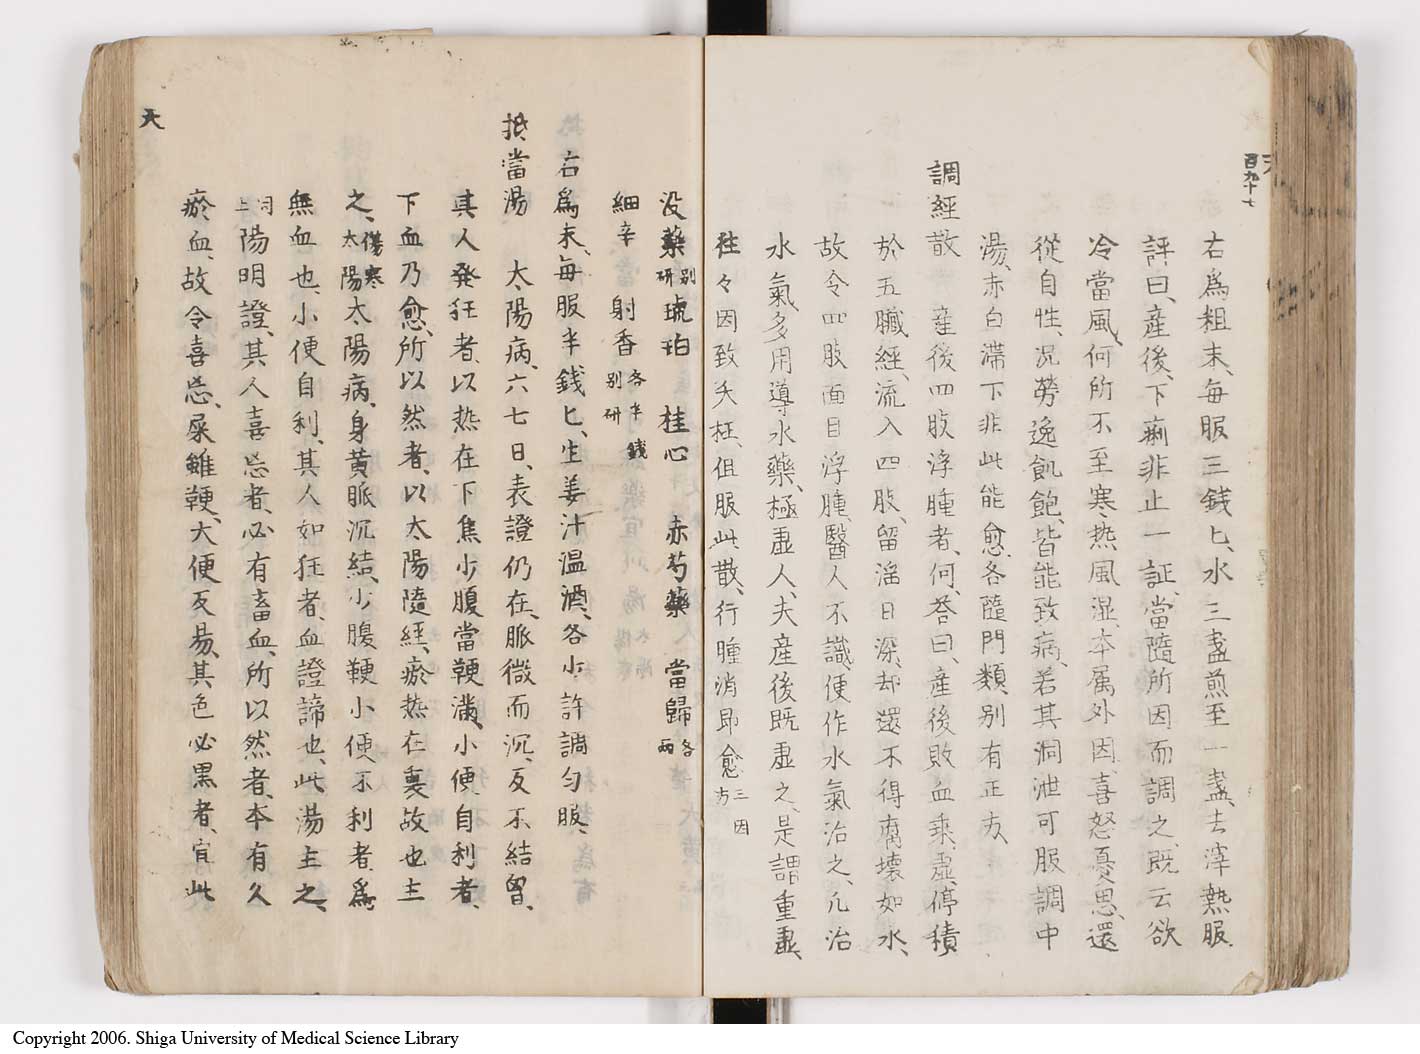 百九十七
右為粗末、毎服三錢匕、水三盞煎至一盞、去滓熱服
評曰、産後、下痢非止一証、當隨所因而調之、既云飲
冷當風、何所不至寒热風湿、本属外因、喜怒憂思、還
從自性、况勞逸飢飽、皆能致病、若其洞泄可服調中
湯、赤白滞下非此能愈、各隨門類、別有正方
調経散　産後四肢浮腫者、何、荅曰、産後敗血乘虚、停積
於五臓経、流入四肢、留淫日深、却還不得腐壊如水、
故令四肢面目浮腫、醫人不識、便作水氣治之、凡治
水氣、多用導水藥、極虚人、夫産後既虚之、是謂重虚、
往々因致夭枉、但服此散、行腫消即愈 三因方
没藥 別研 琥珀　桂心　赤芍藥　當歸 各一兩
細辛　射香 各半錢 別研
右為末、毎服半錢匕、生姜汁温酒、各少許調勻服、
抵當湯　太陽病、六七日、表證仍在、脈微而沉、反不結胷、
其人発狂者、以热在下焦少腹當鞕滿、小便自利者、
下血乃愈、所以然者、以太陽隨経、瘀热在裏故也主
之、傷寒太陽 太陽病、身黄脈沉結、少腹鞕小便不利者、為
無血也、小便自利、其人如狂者、血證諦也、此湯主之、
同上 陽明證、其人喜忘者、必有畜血、所以然者、本有久
瘀血、故令喜忘、屎雖鞕、大便反易、其色必黒者、宜此
天
Copyright 2006. Shiga University of Medical Science Library